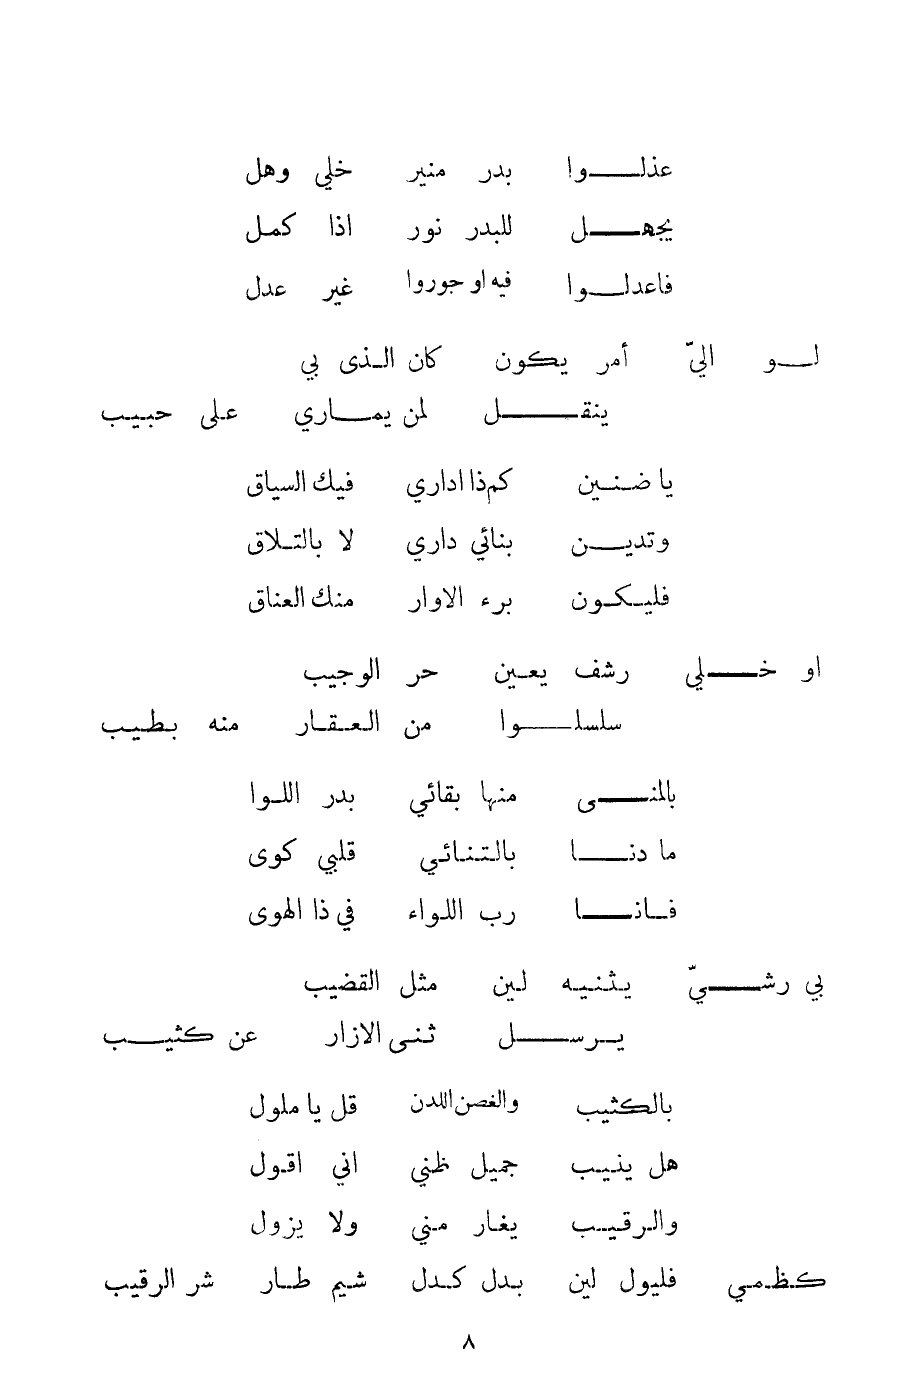 عذلوا بدر منير خلي وهل
يجهل للبدر نور اذا كمل
فاعدلوا فيه او جوروا غير عدل
لو اليّ أمر يكون كان الذى بي
ينقل لمن يماري على حبيب
يا ضنين كم ذا اداري فيك السياق
وتدين بنائي داري لا بالتلاق
فليكون برء الاوار منك العناق
او خلي رشف يعين حر الوجيب
سلسلوا من العقار منه بطيب
بالمنى منها بقائي بدر اللوا
ما دنا بالتنائي قلبي كوى
فانا رب اللواء في ذا الهوى
بي رشيّ يثنيه لين مثل القضيب
يرسل ثنى الازار عن كثيب
بالكثيب والغصن اللدن قل يا ملول
هل ينيب جميل ظني اني اقول
والرقيب يغار مني ولا يزول
كظمي فليول لين بدل كدل شيم طار شر الرقيب
٨